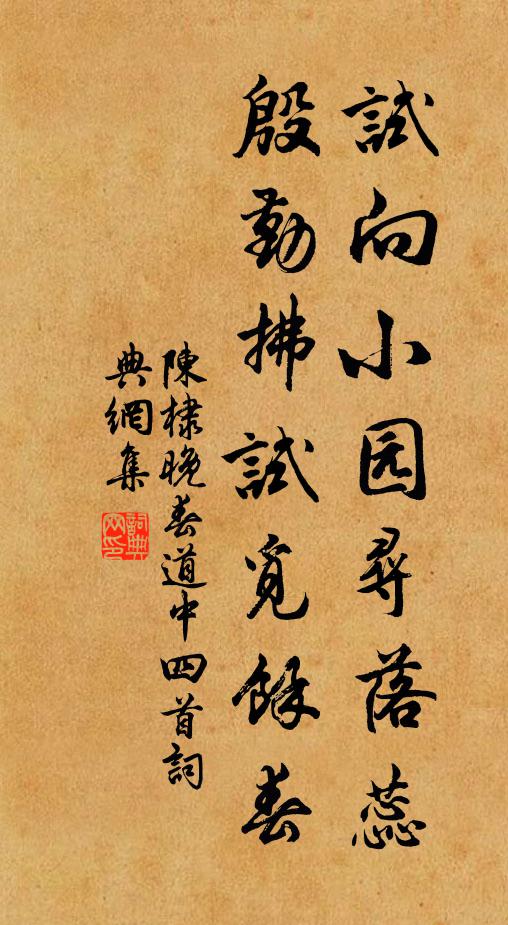 試向小园尋落蕊
殷勤拂試覓餘春
陳棣晚春道中四首詞
典網集
詞典網印